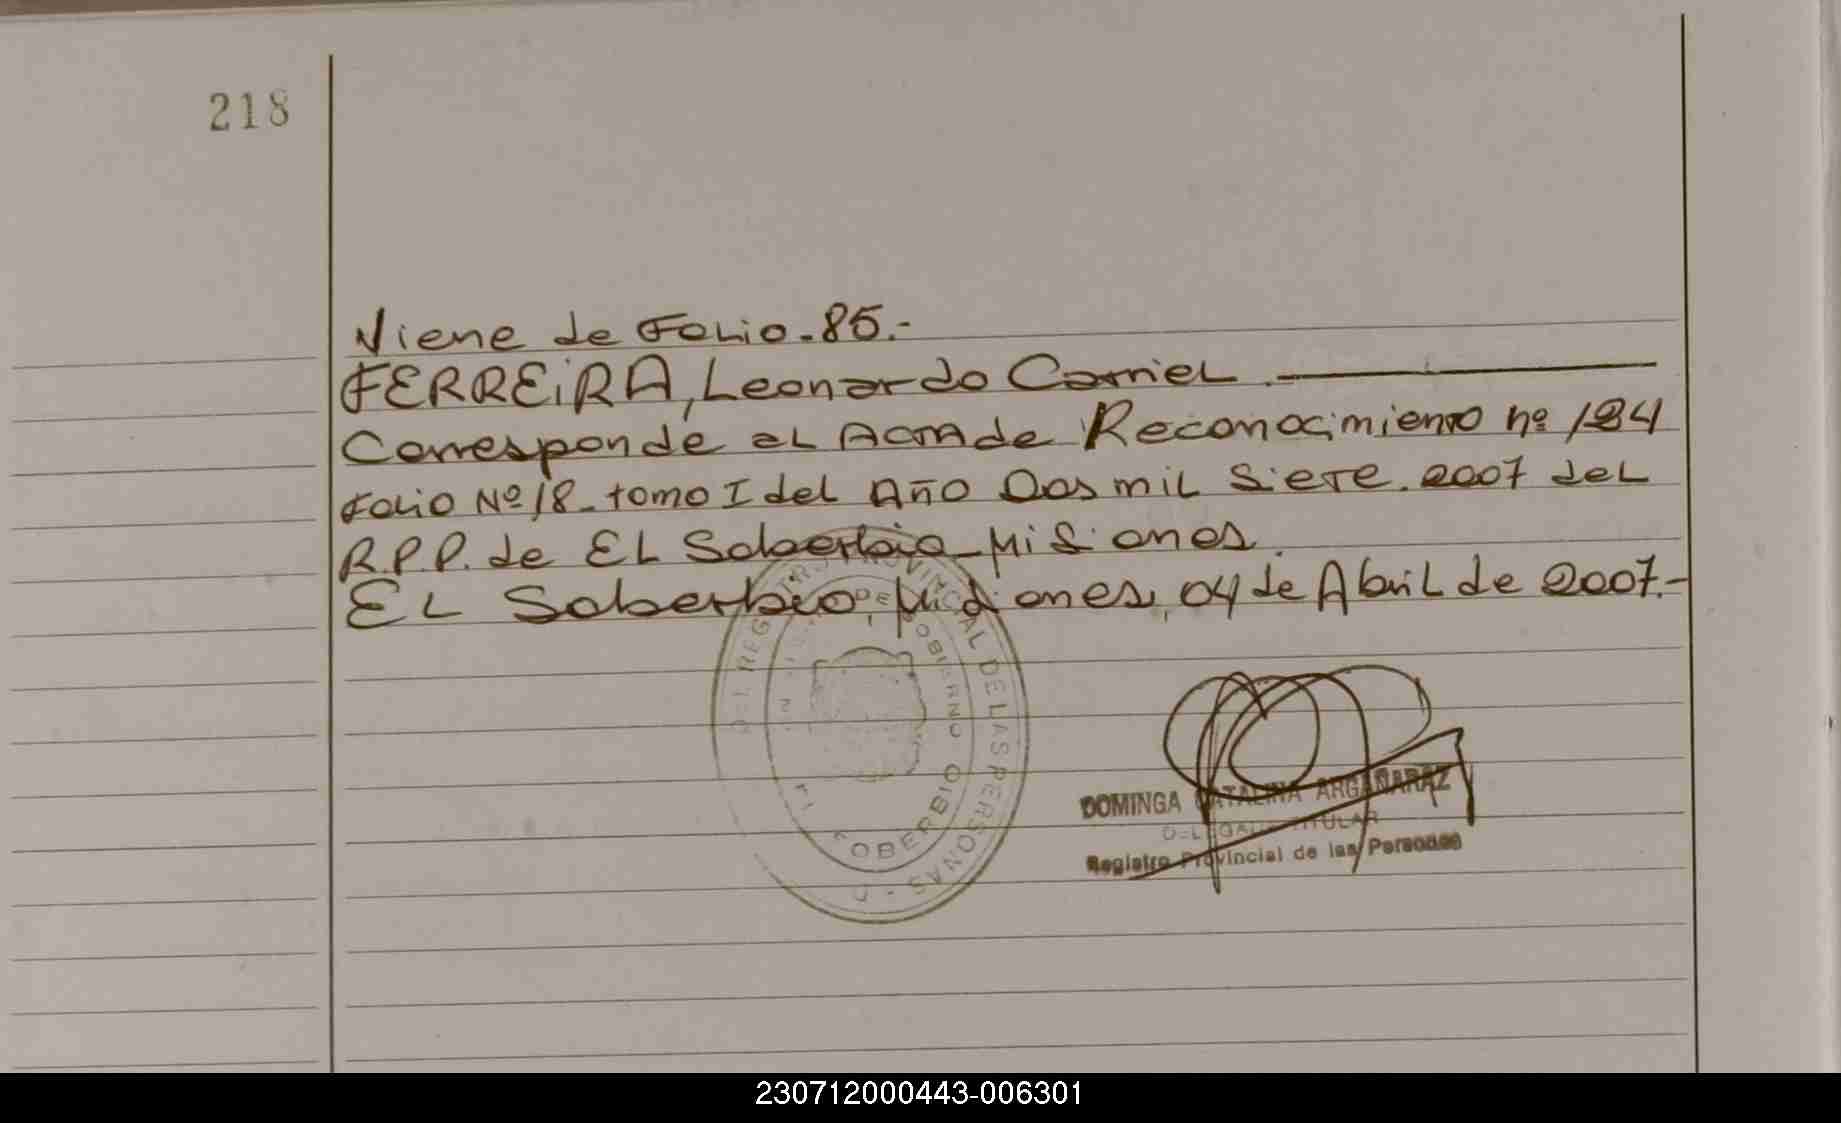 218
Viene de Folio-85.-
FERREIRA, Leonardo Carriel.-
Corresponde al Acta de Reconocimiento nº 184
Folio Nº 18- tomo I del Año Dos mil Siete. 2007 del
R.P.P. de El Soberbio-Misiones.
El Soberbio, Misiones, 04 de Abril de 2007.-
DEL REGISTRO PROVINCIAL DE LAS PERSONAS -
GOBIERNO
SOBERBIO
DOMINGA CATALINA ARGAÑARAZ
DELEGADA TITULAR
Registro Provincial de las Personas
230712000443-006301